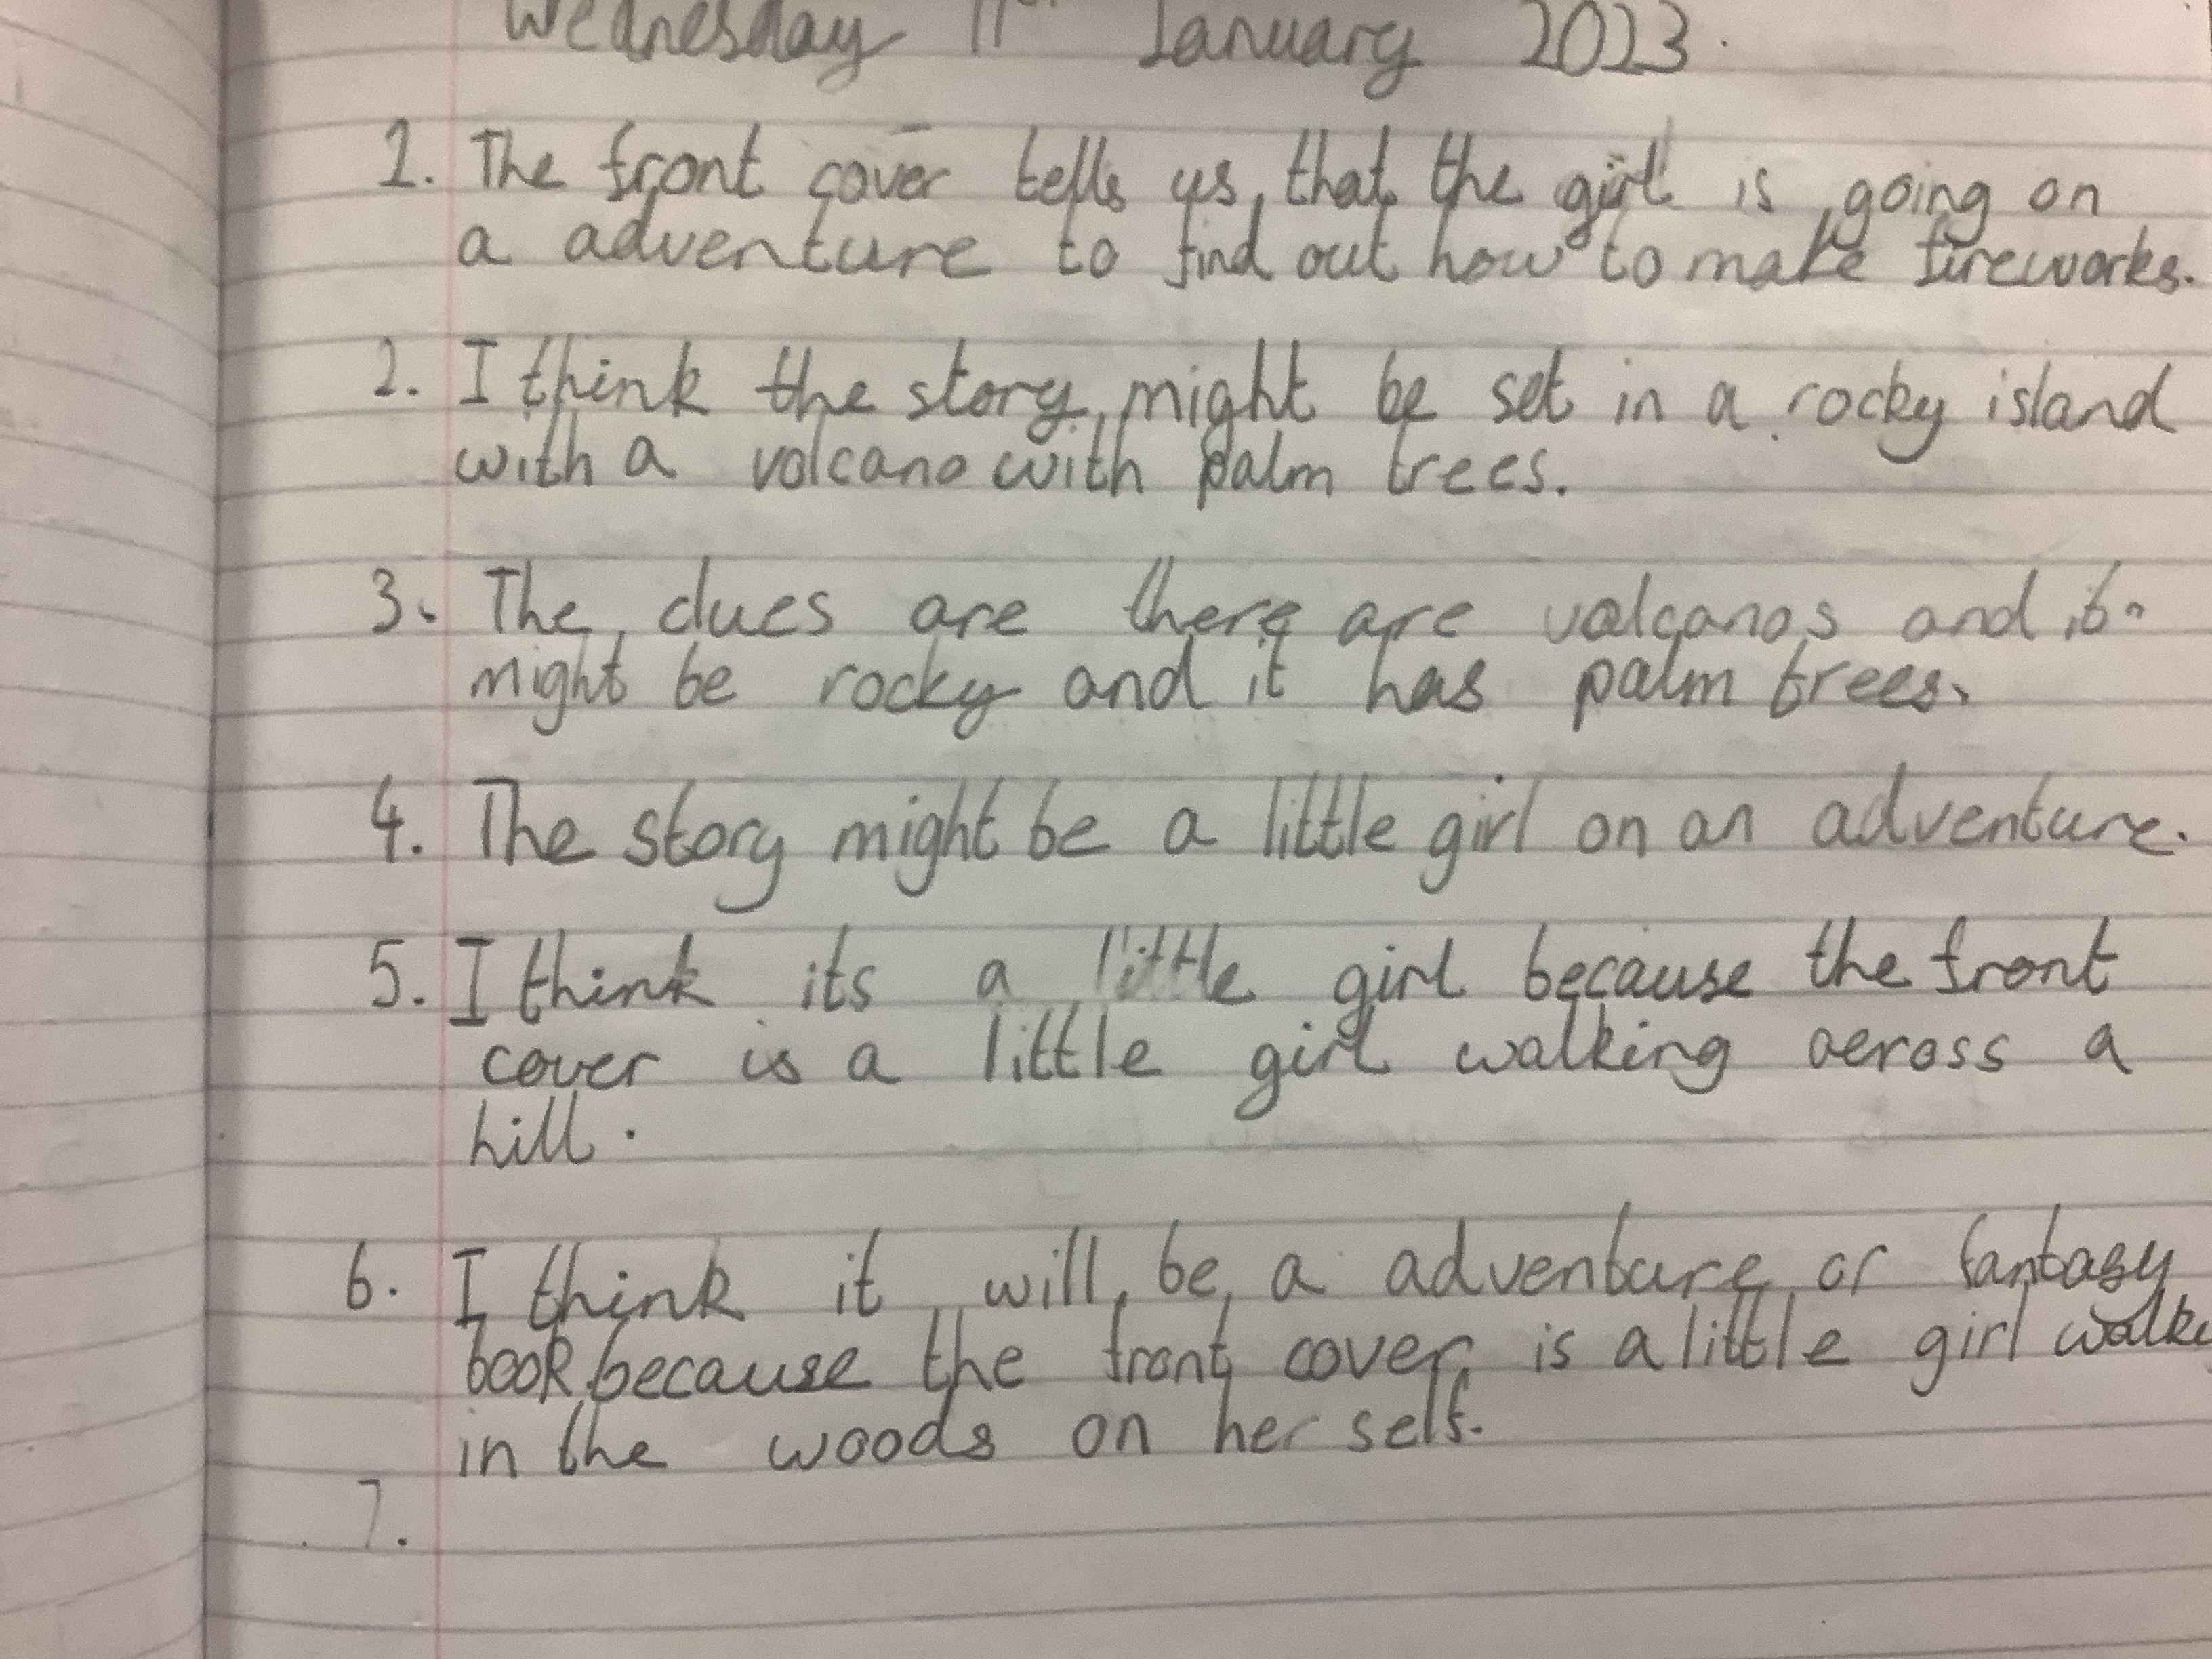 Wednesday 11th January 2023.
1. The front cover tells us that the girl is going on
a adventure to find out how to make fireworks.
2. I think the story might be set in a rocky island
with a volcano with palm trees.
3. The clues are there are volcanos and it
might be rocky and it has palm trees.
4. The story might be a little girl on an adventure.
5. I think its a little girl because the front
cover is a little girl walking across a
hill.
6. I think it will be a adventure or fantasy
book because the front cover is a little girl
in the woods on her self.
7.